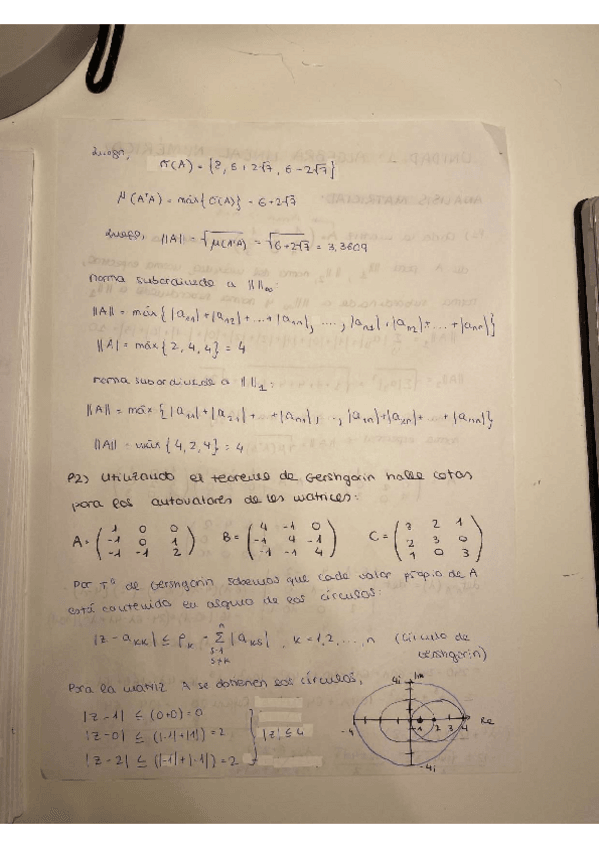 Luego,
σ(A) = {8, 6 + 2√7, 6 - 2√7}
μ(A*A) = máx{σ(A)} = 6 + 2√7
Luego, ||A|| = √μ(A*A) = √6+2√7 = 3,3609
norma subordinada a || ||∞:
||A|| = máx{|a11| + |a12| + ... + |a1n|, ..., |an1| + |an2| + ... + |ann|}
||A|| = máx{2, 4, 4} = 4
norma subordinada a || ||1:
||A|| = máx{|a11| + |a21| + ... + |an1|, ..., |a1n| + |a2n| + ... + |ann|}
||A|| = máx{4, 2, 4} = 4
P2) Utilizando el teorema de Gershgorin halle cotas
para los autovalores de las matrices:
A = (1 0 0; -1 0 1; -1 -1 2) B = (4 -1 0; -1 4 -1; -1 -1 4) C = (3 2 1; 2 3 0; 1 0 3)
Por Tª de Gershgorin sabemos que cada valor propio de A
está contenido en alguno de los círculos:
|z - akk| ≤ ρk = Σ |akj|, k = 1,2,...,n (Círculo de
Gershgorin)
Para la matriz A se obtienen los círculos,
|z - 1| ≤ (0+0) = 0
|z - 0| ≤ (|-1|+|1|) = 2 } |z| ≤ 4
|z - 2| ≤ (|-1|+|-1|) = 2
4i Im
-4 1 2 3 4 Re
-4i